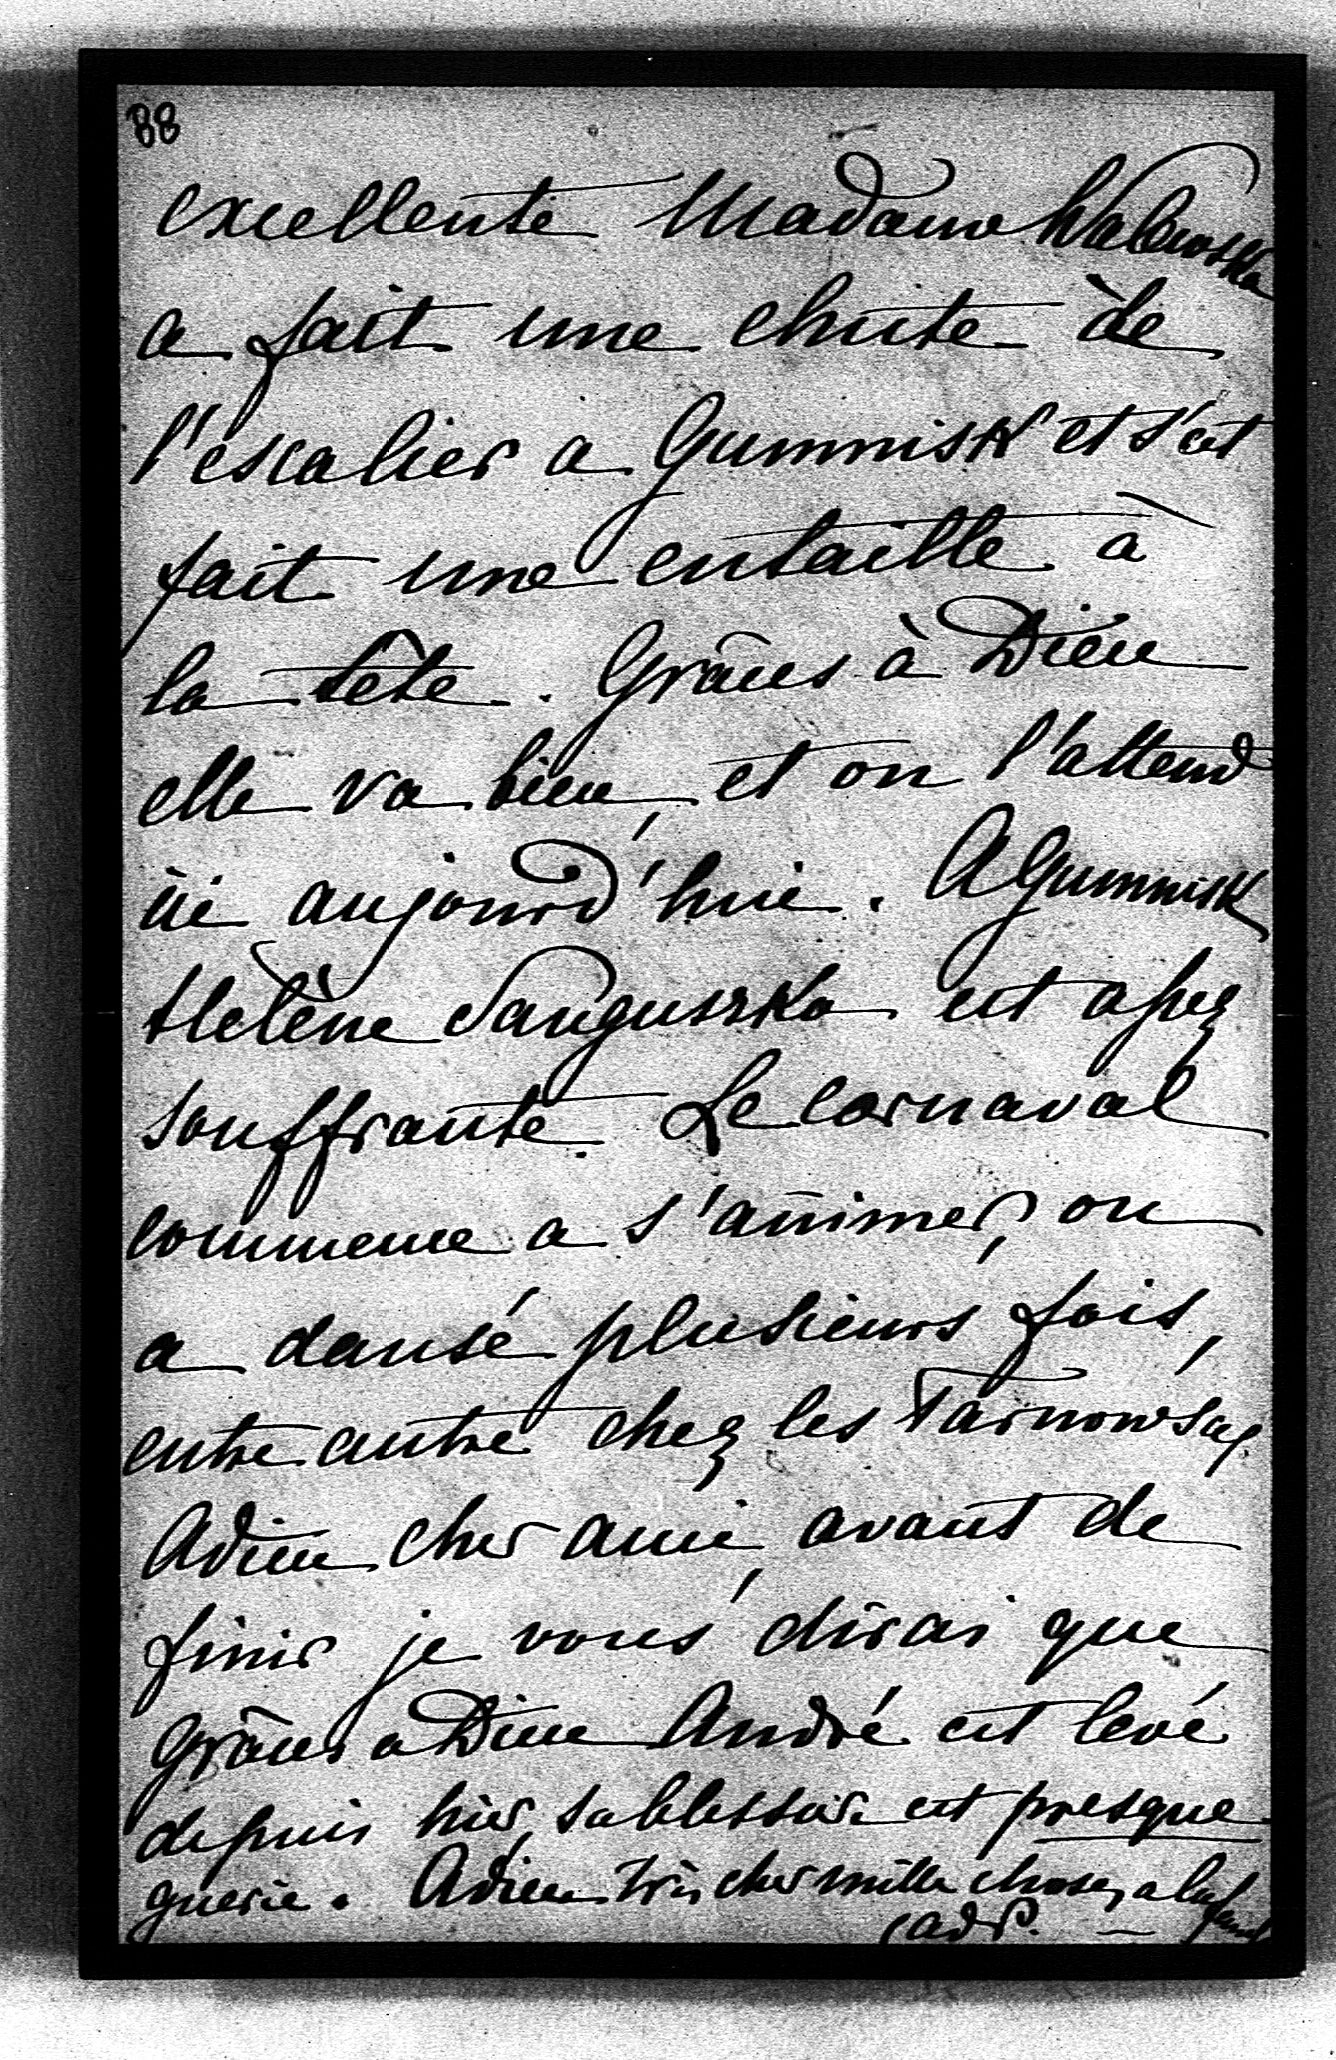 88
excellente Madame Walewska
a fait une chute de
l'escalier a Gumnisk et s'est
fait une entaille à
la tête. Grâces à Dieu
elle va bien, et on l'attend
ici aujourd'hui. A Gumnisk
Hélène Sanguszko est assez
souffrante. Le Carnaval
commence a s'animer, on
a dansé plusieurs fois,
entre autre chez les Tarnowski.
Adieu cher ami, avant de
finir je vous dirai que
grâces a Dieu André est levé
depuis hier, sa blessure est presque
guerie. Adieu très cher mille choses a